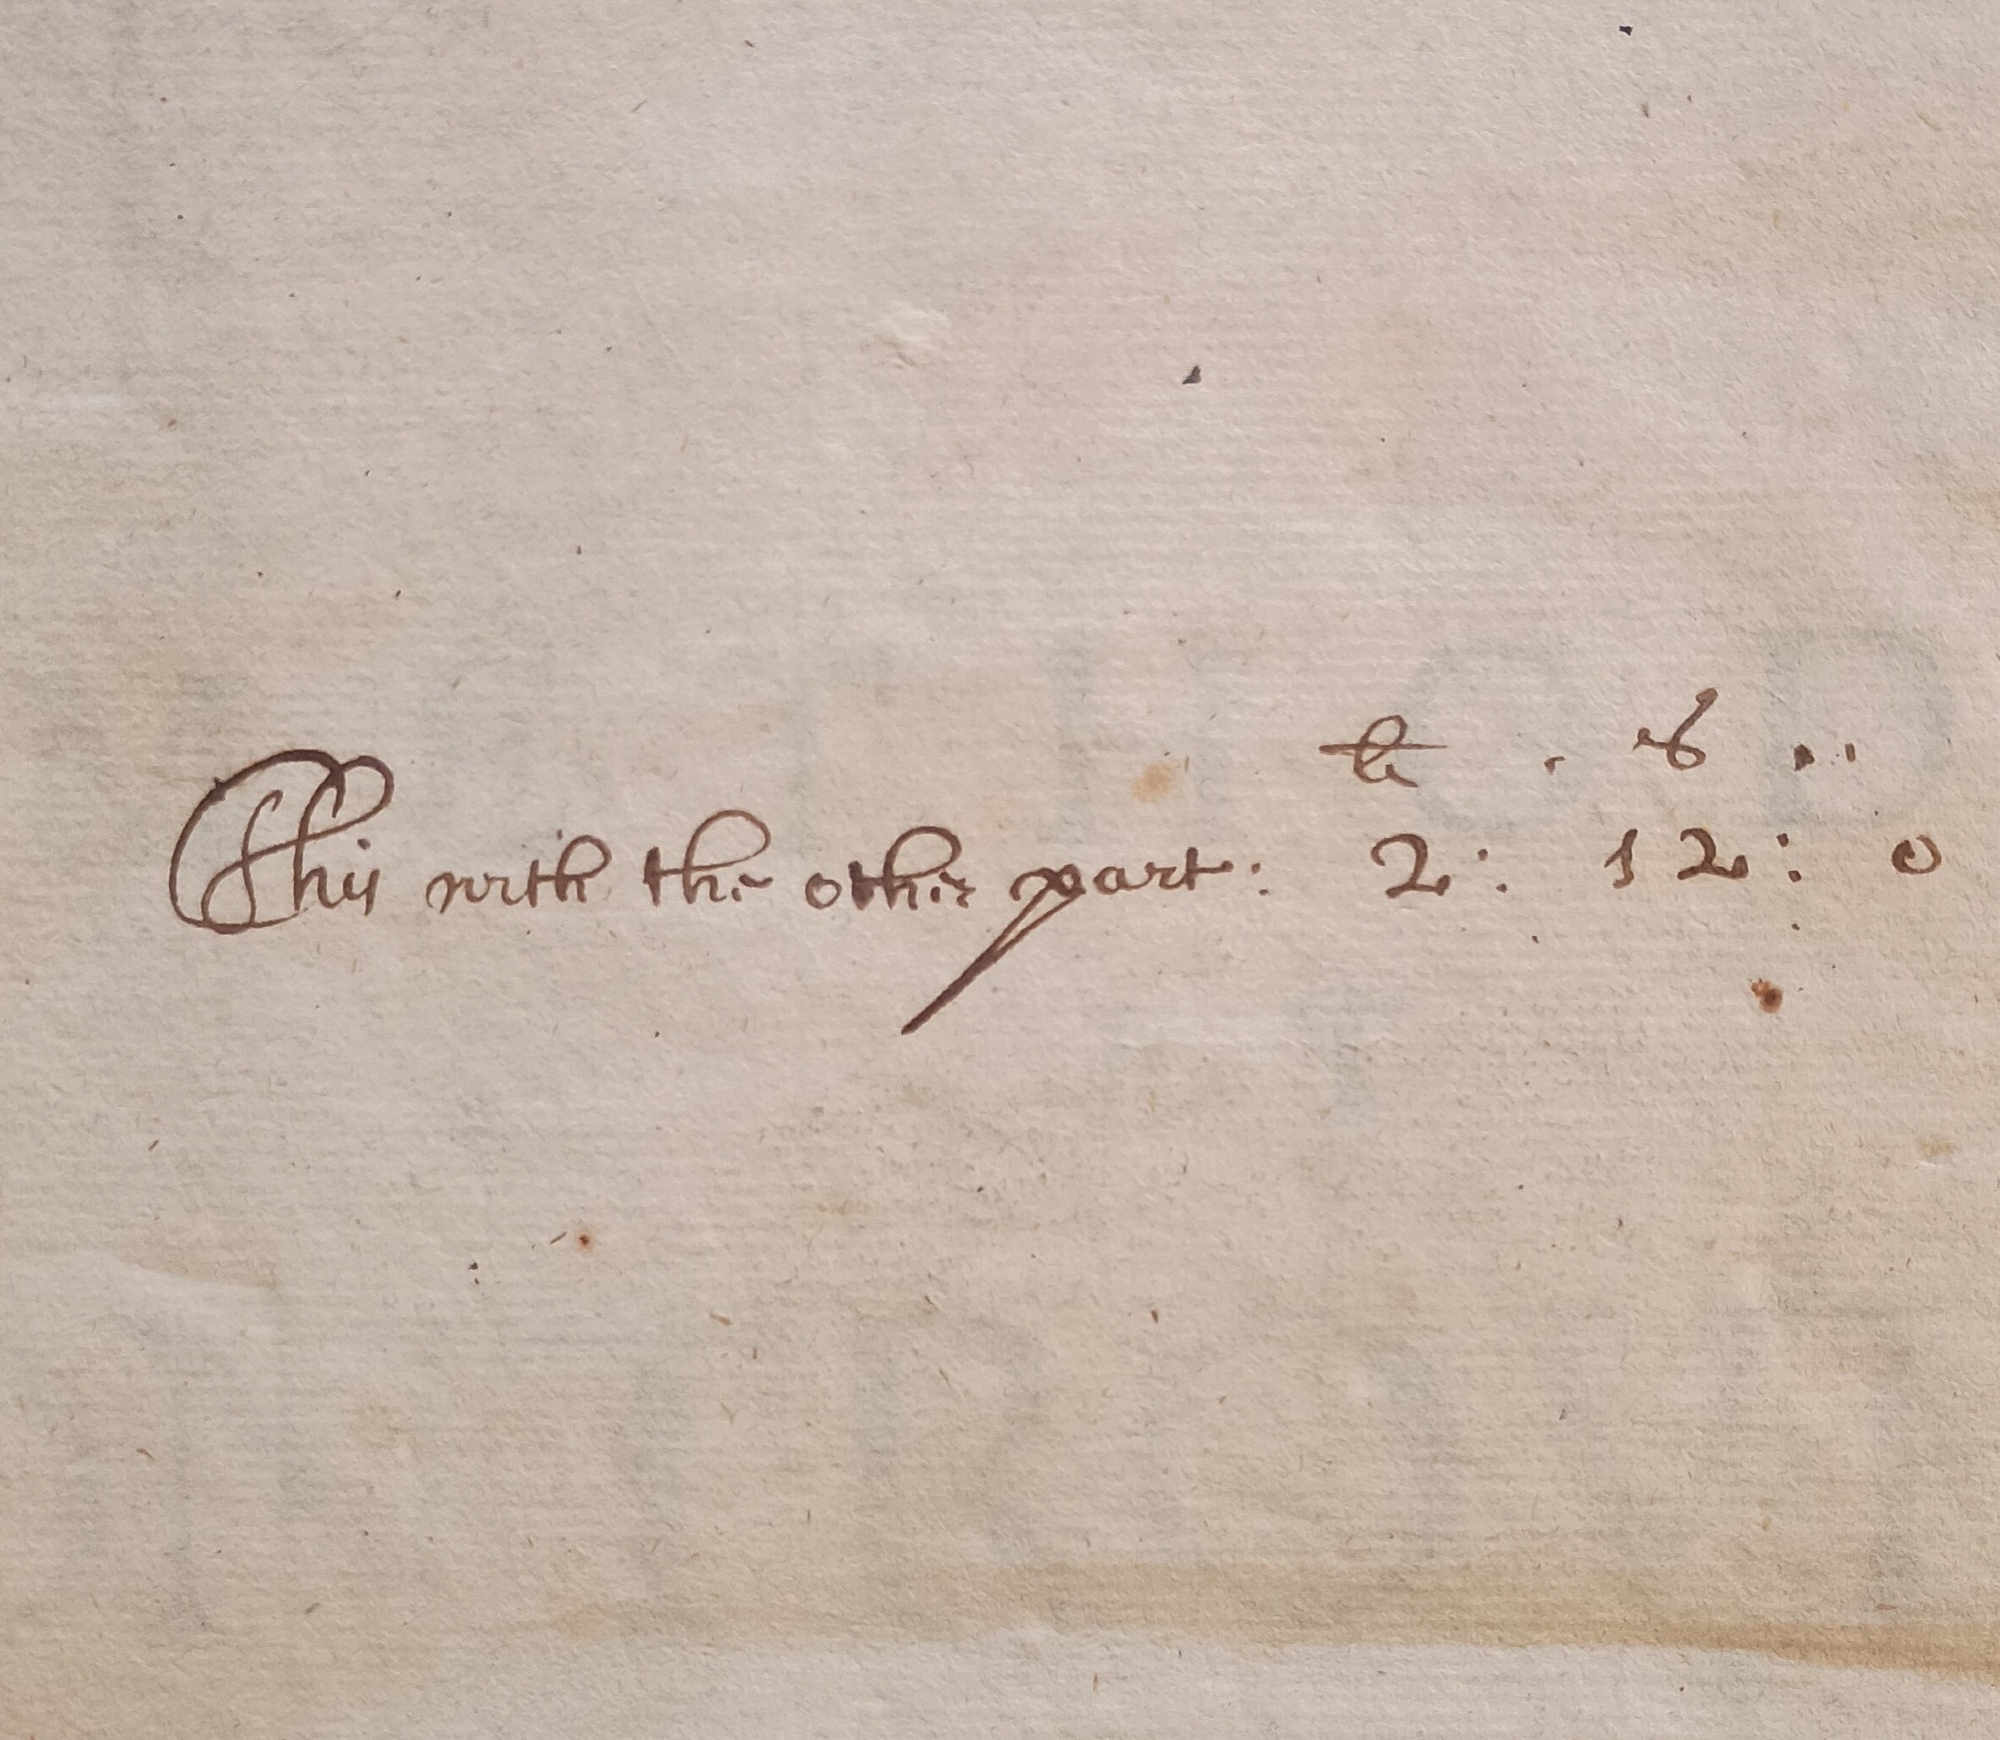 li . s ..
This with the other part: 2: 12: 0